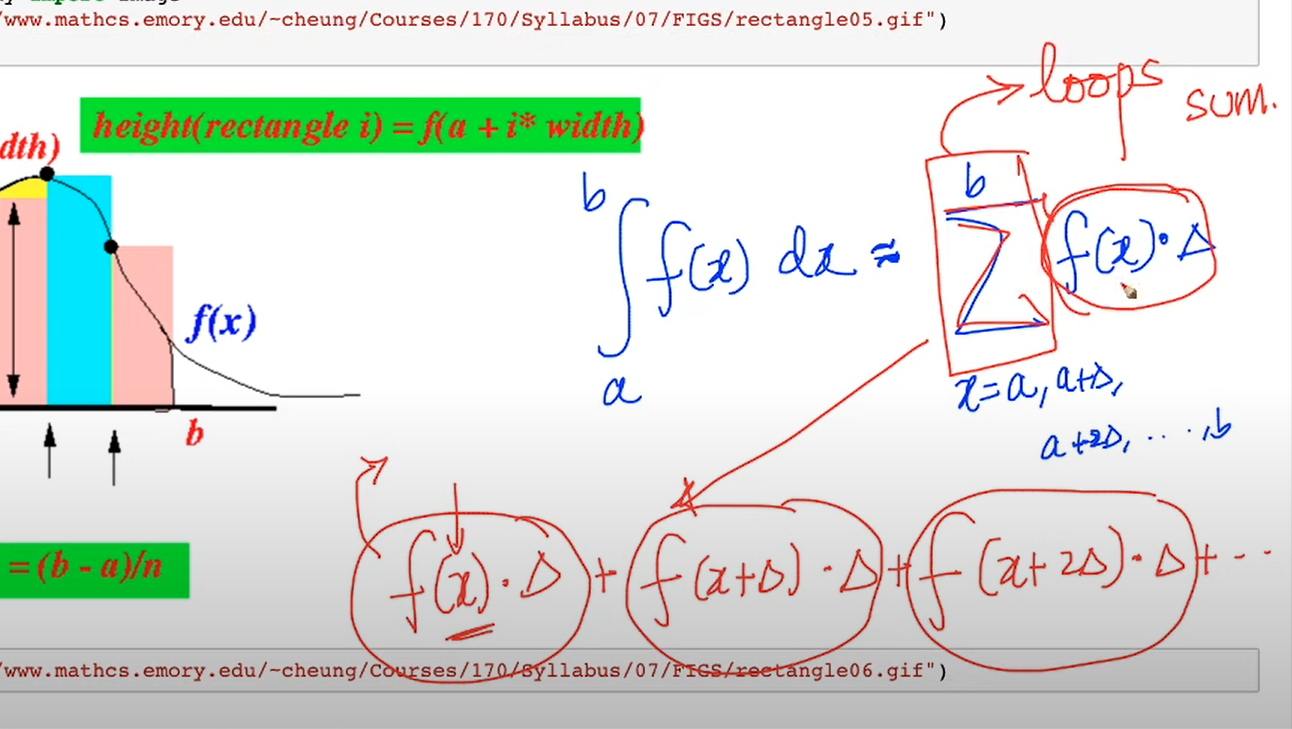 import
/www.mathcs.emory.edu/~cheung/Courses/170/Syllabus/07/FIGS/rectangle05.gif")
loops
sum.
height(rectangle i) = f(a + i* width)
dth)
b
∫ f(x) dx ≈
a
b
Σ f(x)·Δ
x=a, a+Δ,
a+2Δ, ....,b
f(x)
b
f(x)·Δ + f(x+Δ)·Δ + f(x+2Δ)·Δ + ...
= (b - a)/n
/www.mathcs.emory.edu/~cheung/Courses/170/Syllabus/07/FIGS/rectangle06.gif")